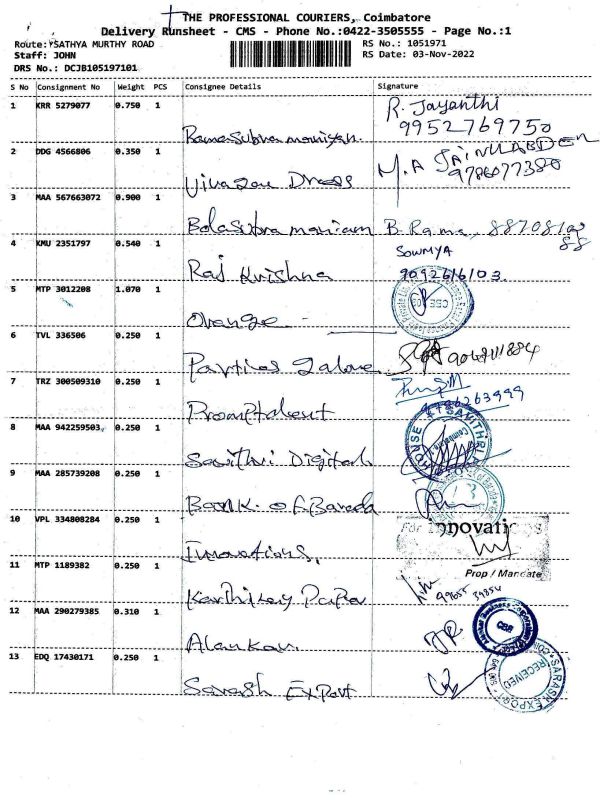 THE PROFESSIONAL COURIERS, Coimbatore
Delivery Runsheet - CMS - Phone No.:0422-3505555 - Page No.:1
Route:YSATHYA MURTHY ROAD
RS No.: 1051971
Staff: JOHN
RS Date: 03-Nov-2022
DRS No.: DCJB105197101
S No Consignment No Weight PCS Consignee Details Signature
1 KRR 5279077 0.750 1
R. Jayanthi
9952769750
Ramasubramaniyan.
2 DDG 4566806 0.350 1
M.A JAINULABDEEN
9786077380
Vivagaa Dress
3 MAA 567663072 0.900 1
Balasubramaniam B. Rama,
88
4 KMU 2351797 0.540 1
SOWMYA
Raj Krishna 9092616103
5 MTP 3012208 1.070 1
CBE
Orange
6 TVL 336506 0.250 1
Particos Galore
7 TRZ 300509310 0.250 1
Promptalent
8 MAA 942259503 0.250 1
HOUSE SAVITHRI
Savithri Digital
9 MAA 285739208 0.250 1
Bank of Baroda
10 VPL 334808284 0.250 1
For innovations
Innovations,
Prop / Mandate
11 MTP 1189382 0.250 1
Karthikey Papa
12 MAA 290279385 0.310 1
CBE
Alankar
13 EDQ 17430171 0.250 1
SARASH EXPORT
RECEIVED
Sarash Export